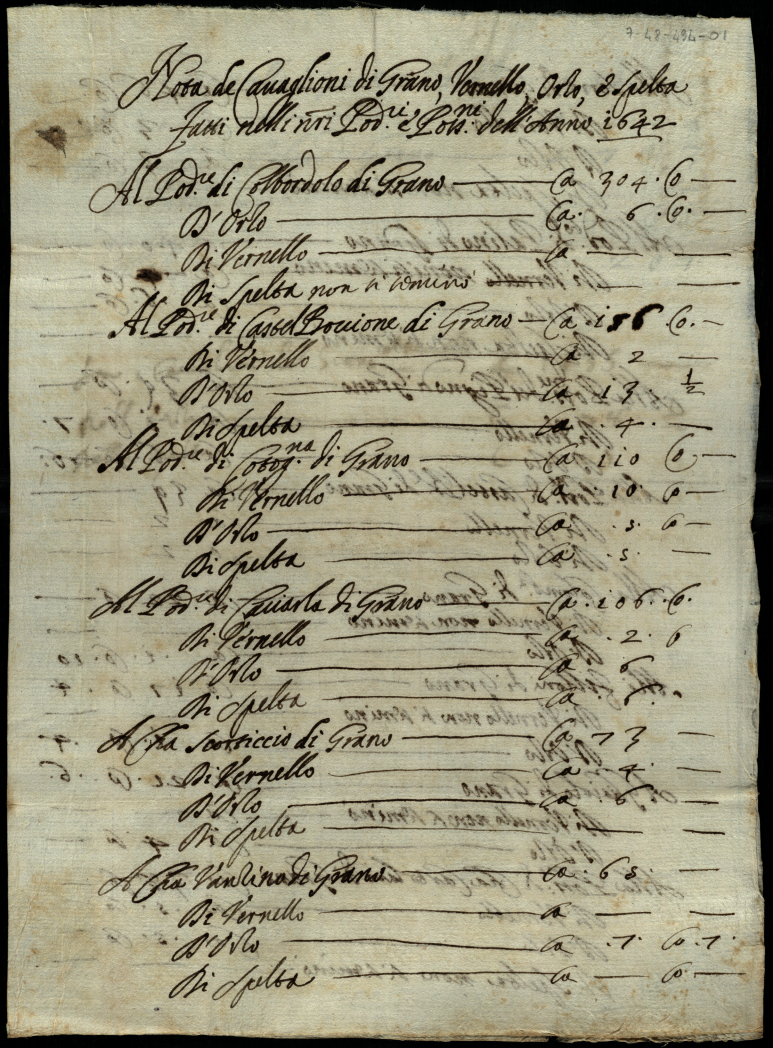 7-48-494-01
Nota de Cavaglioni di Grano, Vernello, Orlo, e Spelta
Fatti nelli nri Pod.ri e Poss.ni dell'Anno 1642
Al Pod.re di Colbordolo di Grano — Ca 304. Co —
D'Orlo — Ca. 6. Co. —
Di Vernello — Ca — —
Di Spelta non si semino
Al Pod.re di Castel Boccione di Grano — Ca. 156 Co. —
Di Vernello — Ca 2 —
D'Orlo — Ca 13. ½
Di Spelta — Ca . 4. —
Al Pod.re di Cotog.na di Grano — Ca 110 Co —
Di Vernello — Ca . 10. Co —
D'Orlo — Ca . 5. Co —
Di Spelta — Ca . 5. —
Al Pod.re di Caviarla di Grano — Ca . 106. Co.
Di Vernello — Ca . 2. Co
D'Orlo — Ca 6 —
Di Spelta — Ca . 6.
A Cha Scorticcio di Grano — Ca 73 —
Di Vernello — Ca . 4. —
D'Orlo — Ca . 6. —
Di Spelta — — —
A Cha Vanzino di Grano — Ca . 65 —
Di Vernello — Ca — —
D'Orlo — Ca . 7. Co. 7.
Di Spelta — Ca — Co. —